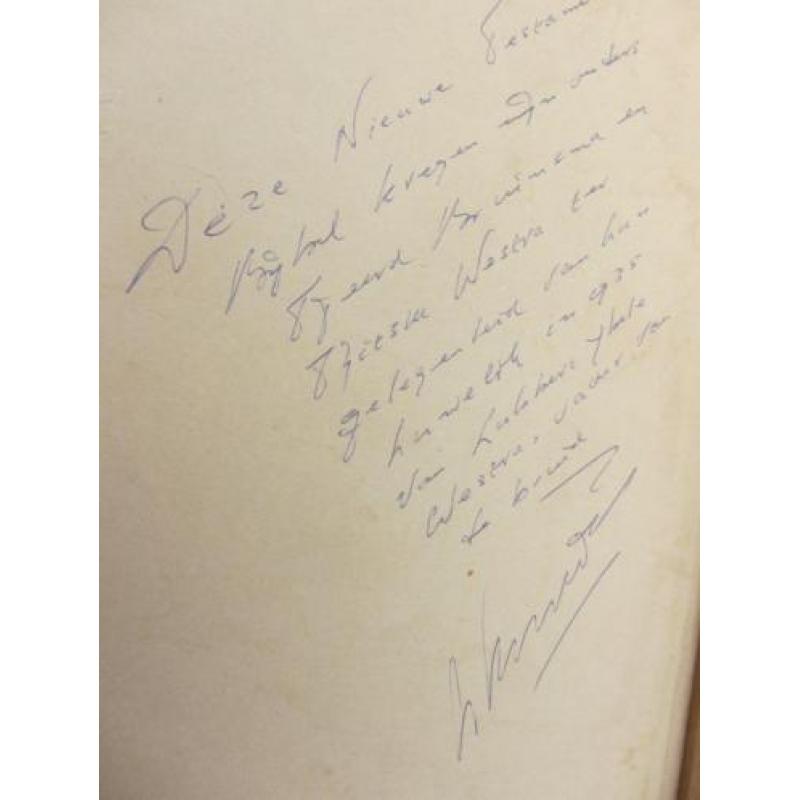 Deze Nieuwe Testame
Bijbel kregen mijn ouders
Tjeerd Bruinsma en
Tjitske Westra ter
gelegenheid van hun
huwelijk in 1935
van Lubbert
Westra, vader van
de bruid